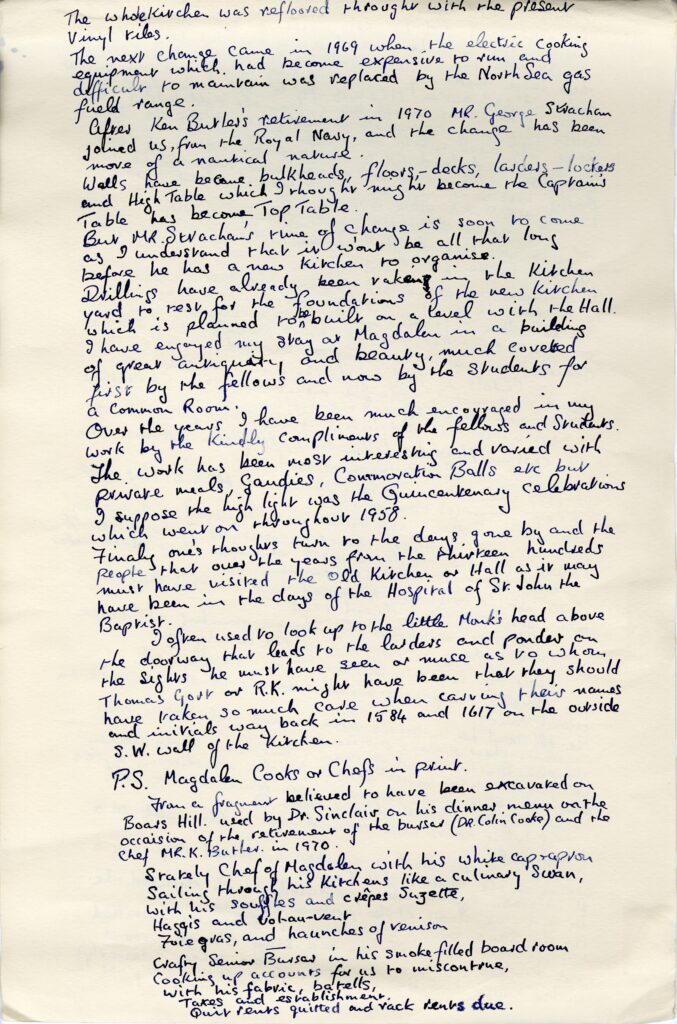 The whole Kitchen was refloored throught with the present
Vinyl tiles.
The next change came in 1969 when the electric cooking
equipment which had become expensive to run and
difficult to maintain was replaced by the North Sea gas
fueld range.
After Ken Butler's retirement in 1970 MR. George Strachan
joined us, from the Royal Navy, and the change has been
more of a nautical nature.
Walls have become bulkheads, floors,-decks, larders-lockers
and High Table which I thought might become the Captain's
Table has become, Top Table.
But, MR. Strachan's time of change is soon to come
as I understand that it won't be all that long
before he has a new Kitchen to organise.
Drillings have already been taken in the Kitchen
yard to test for the foundations of the new Kitchen
which is planned to be built on a level with the Hall.
I have enjoyed my stay at Magdalen in a building
of great antiquity, and beauty, much coveted
first by the fellows and now by the students for
a Common Room.
Over the years I have been much encouraged in my
work by the kindly compliments of the fellows and Students.
The work has been most interesting and varied with
private meals, Gaudies, Commoration Balls etc but
I suppose the high light was the Quincentenary celebrations
which went on throughout 1958.
Finaly one's thoughts turn to the days gone by and the
people that over the years from the thirteen hundreds
must have visited the Old Kitchen or Hall as it may
have been in the days of the Hospital of St. John the
Baptist.
I often used to look up to the little Monk's head above
the doorway that leads to the larders and ponder on
the sights he must have seen or muse as to whom
Thomas Gort or R.K. might have been that they should
have taken so much care when carving their names
and initials way back in 1584 and 1617 on the outside
S.W. wall of the Kitchen.
P.S. Magdalen Cooks or Chefs in print.
From a fragment believed to have been excavated on
Boars Hill. used by Dr. Sinclair on his dinner menu on the
occaision of the retirement of the bursar (DR. Colin Cooke) and the
Chef MR. K. Butler. in 1970.
Stately Chef of Magdalen with his white cap &amp; apron
Sailing through his Kitchens like a culinary Swan,
with his souffles and crêpes Suzette,
Haggis and vol-au-vent
Foie gras, and haunches of venison
Crafty Senior Bursar in his smoke-filled board room
Cooking up accounts for us to miscontrue,
with his fabric, batells,
Taxes and establishment.
Quit rents quitted and rack rents due.